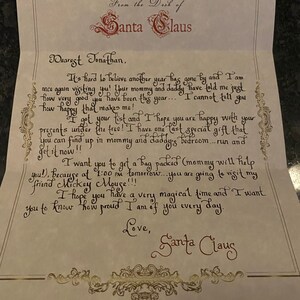 From the Desk of
Santa Claus
Dearest Jonathan,
It's hard to believe another year has gone by and I am
once again visiting you! Your mommy and daddy have told me just
how very good you have been this year... I cannot tell you
how happy that makes me!
I got your list and I hope you are happy with your
presents under the tree! I have one last special gift that
you can find up in mommy and daddy's bedroom... run and
get it now!!
I want you to get a bag packed (mommy will help
you), because at 4:00 am tomorrow... you are going to visit my
friend Mickey Mouse!!!
I hope you have a very magical time and I want
you to know how proud I am of you every day.
Love,
Santa Claus